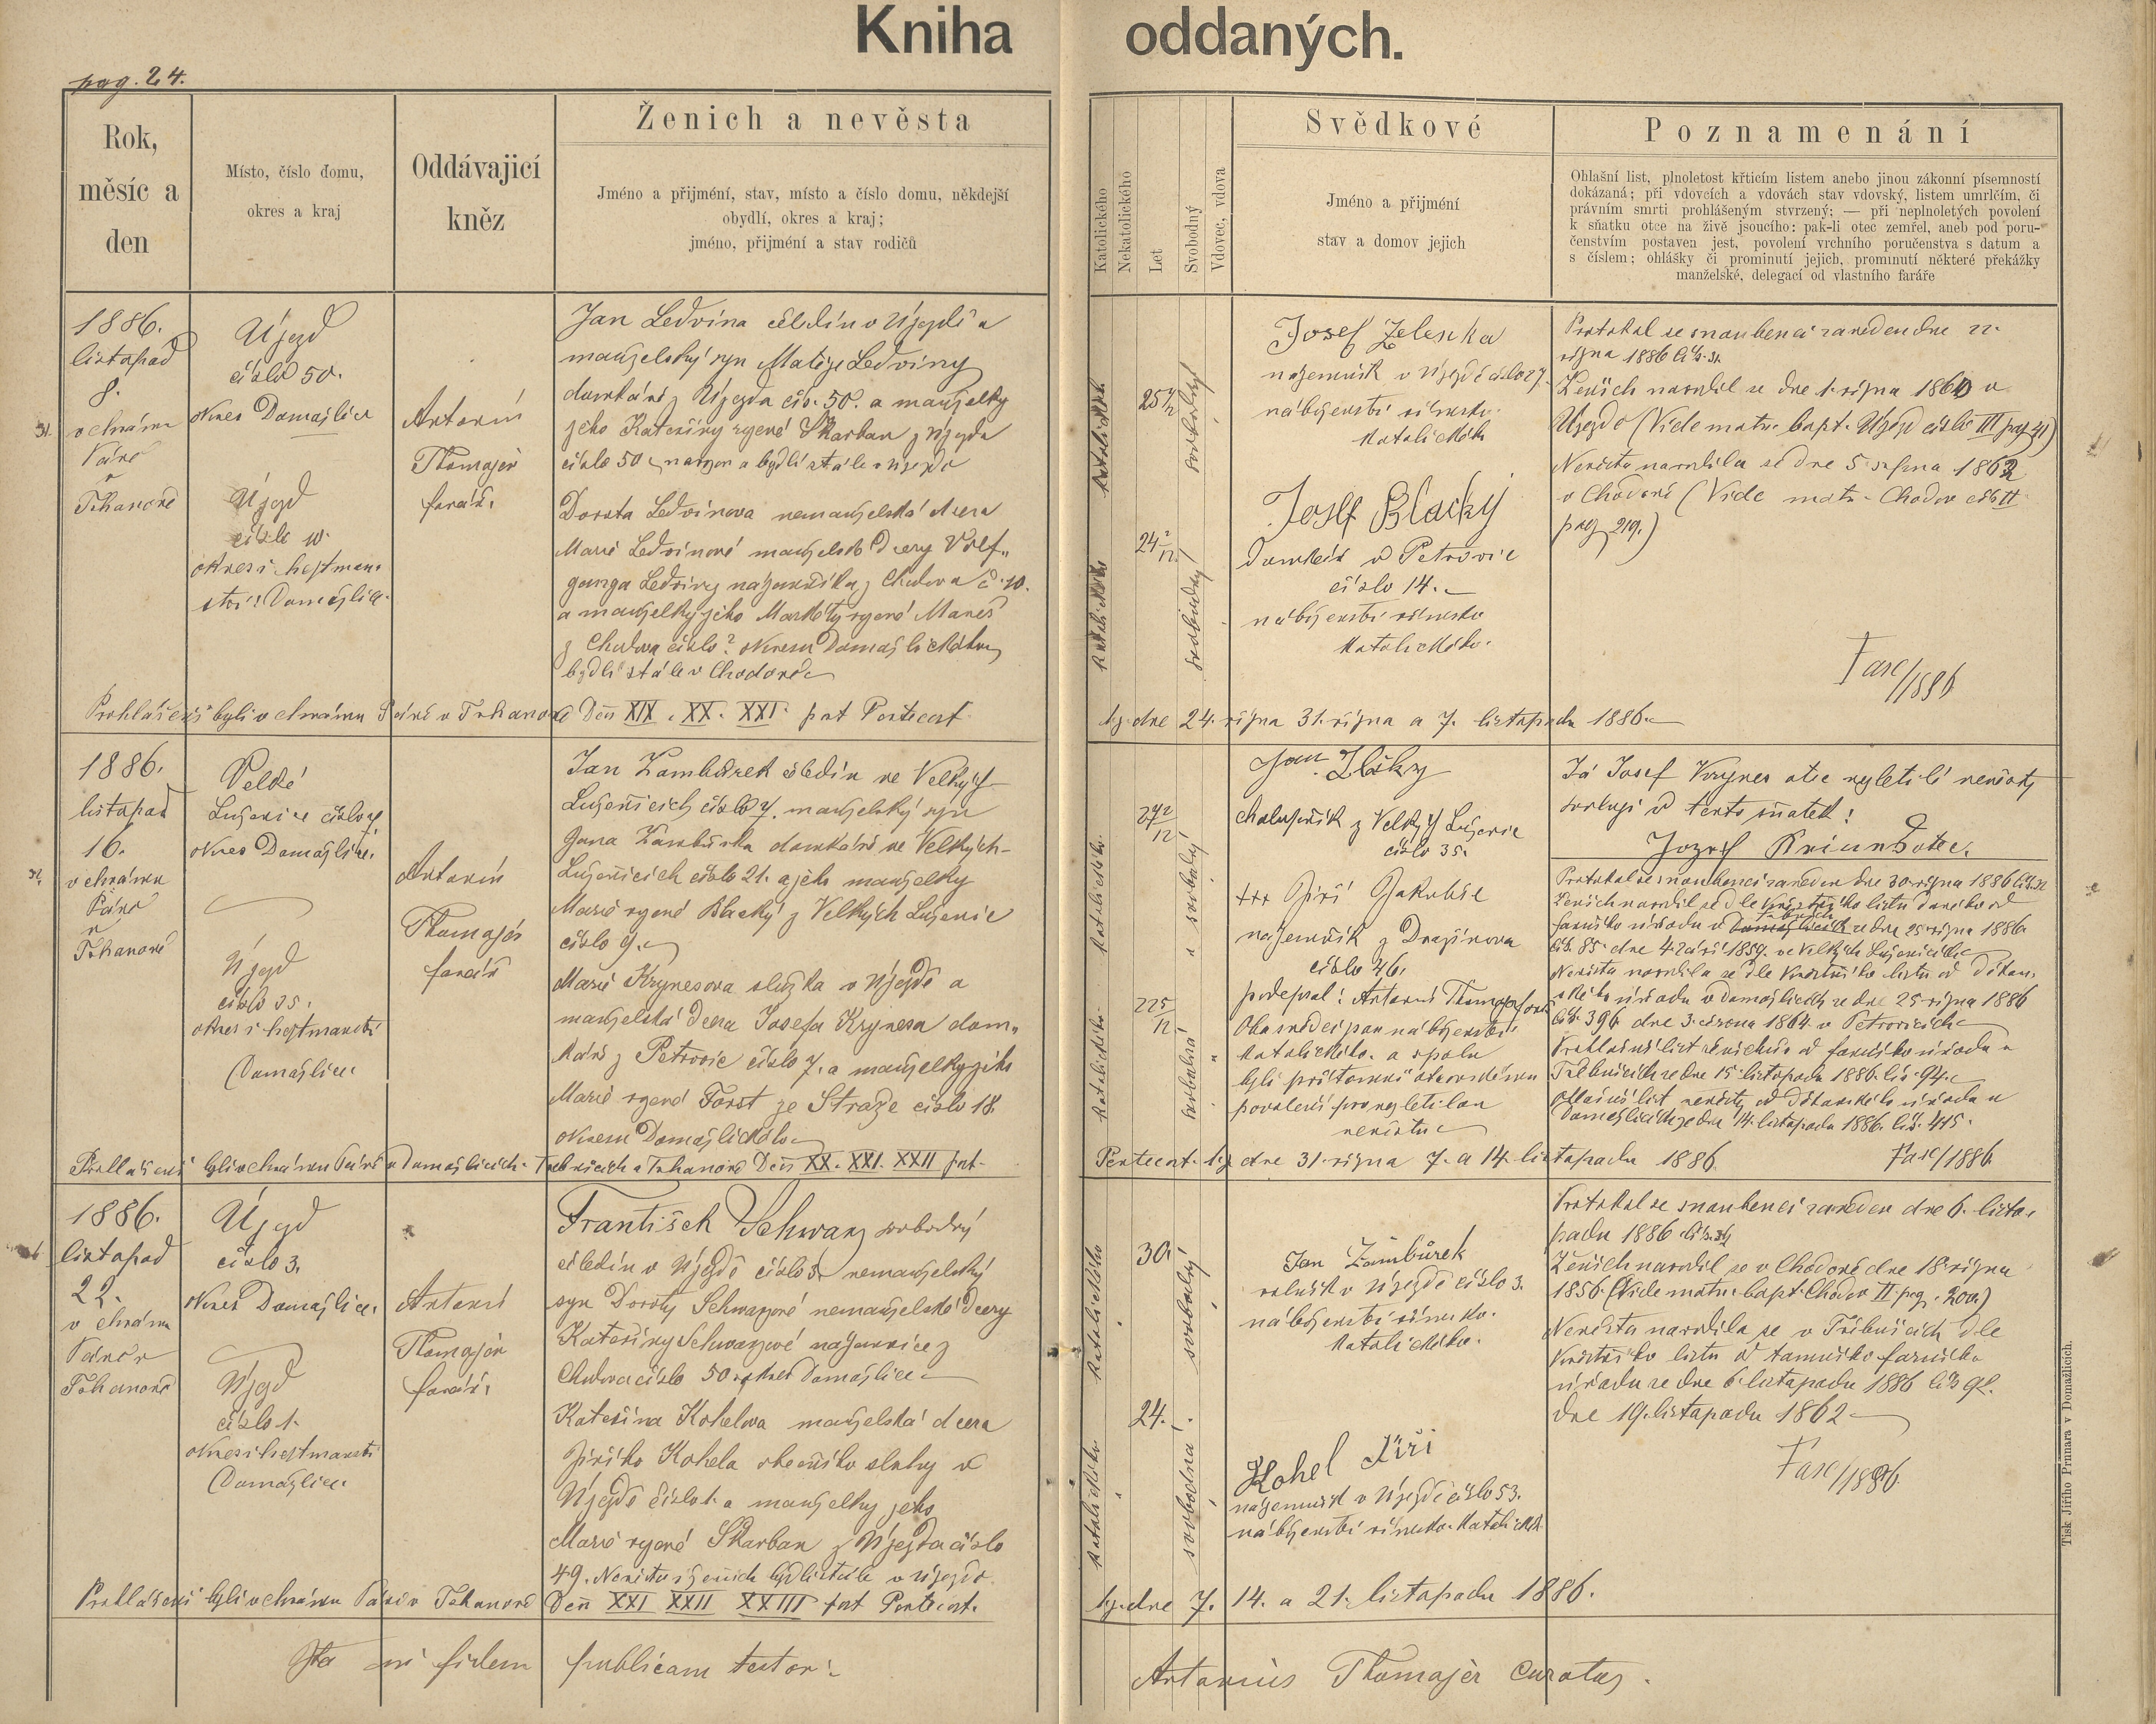 Kniha oddaných.
pag. 24.
Rok,
měsíc a
den
Místo, číslo domu,
okres a kraj
Oddávajicí
kněz
Ženich a nevěsta
Jméno a přijmení, stav, místo a číslo domu, někdejší
obydlí, okres a kraj;
jméno, přijmení a stav rodičů
Katolického
Nekatolického
Let
Svobodný
Vdovec, vdova
Svědkové
Jméno a přijmení
stav a domov jejich
Poznamenání
Ohlašní list, plnoletost křticím listem anebo jinou zákonní písemností
dokázaná; při vdovcích a vdovách stav vdovský, listem umrlčím, či
právním smrti prohlášeným stvrzený; — při neplnoletých povolení
k sňatku otce na živě jsoucího: pak-li otec zemřel, aneb pod poru-
čenstvím postaven jest, povolení vrchního poručenstva s datum a
s číslem; ohlášky či prominutí jejich, prominutí některé překážky
manželské, delegací od vlastního faráře
1886.
listopad
8.
v chrámu
Páně
v
Trhanově
Újezd
číslo 50.
okres Domažlice
Újezd
číslo 10.
okres i hejtman-
ství Domažlice
Antonín
Thomajer
farář.
Jan Ledvina čeledín v Újezdě a
manželský syn Matěje Ledviny
domkáře z Újezda čís. 50. a manželky
jeho Kateřiny rozené Skarban z Újezda
číslo 50 narozen a bydlí stále v Újezdě
Dorota Ledvinova nemanželská dcera
Marie Ledvinové manželské dcery Volf-
ganga Ledviny nájemníka z Chodova č. 10.
a manželky jeho Markéty rozené Mareš
z Chodova číslo? okresu Domažlického
bydlí stále v Chodově
katolického
25
svobodný
katolického
24 2/12
svobodná
Josef Zelenka
nájemník v Újezdě číslo 27.
náboženství římsko-
katolického
Josef Blacký
domkář v Petrovic
číslo 14.
náboženství římsko
katolického.
Protokol se snoubenci zaveden dne 22.
října 1886 čís. 31.
Ženich narodil se dne 1. října 1860 v
Újezdě (Vide matr. bapt. Újezd číslo III pag 41)
Nevěsta narodila se dne 5. srpna 1862
v Chodově (Vide matr. Chodov čís II
pag 219.)
Fasc/1886
Prohlášeni byli v chrámu Páně v Trhanově Den XIX. XX. XXI. post Pentecost.
t.j. dne 24. října 31. října a 7. listopadu 1886.
1886.
listopad
16.
v chrámu
Páně
v
Trhanově
Velké
Luženice číslo 7.
okres Domažlice.
Újezd
číslo 35.
okres i hejtmanství
Domažlice.
Antonín
Thomajer
farář
Jan Zambůrek čeledín ve Velkých
Luženicích číslo 7. manželský syn
Jana Zambůrka domkáře ve Velkých-
Luženicích číslo 21. a jeho manželky
Marie rozené Blacký z Velkých Luženic
číslo 9.
Marie Krynesova služka v Újezdě a
manželská dcera Josefa Krynesa dom-
káře z Petrovic číslo 7. a manželky jeho
Marie rozené Forst ze Straže číslo 18.
okresu Domažlického
katolického.
27 2/12
svobodný
katolického.
22 5/12
svobodná
Jan
chalupník z Velkých Luženic
číslo 35.
+++ Jiří Jakubše
nájemník z Draženova
číslo 46.
podepsal: Antonín Thomajer farář
Oba svědci jsou náboženství
katolického. a spolu
byli přítomni otcovskému
povolení pro nezletilou
nevěstu
Já Josef Krynes otec nezletilé nevěsty
svoluji v tento sňatek:
Protokol se snoubenci zaveden dne 30. října 1886 čís. 32
Ženich narodil se dle křestního listu daného od
farního úřadu v ze dne 25. října 1886
čís. 85. dne 4 září 1859. ve Velkých Luženicích
Nevěsta narodila se dle křestního listu od děkan-
ského úřadu v Domažlicích ze dne 25 října 1886
čís. 396. dne 3. června 1864. v Petrovicích
Prohlašní list ženichův od farního úřadu v
Trhbnicích ze dne 15. listopadu 1886. čís. 94.
ohlašní list nevěsty od děkanského úřadu v
Domažlicích ze dne 14. listopadu 1886. čís. 415.
Fasc/1886
Prohlášeni byli v chrámu Páně v Domažlicích. a Trhanově Den XX. XXI. XXII post-
Pentecost. t.j. dne 31. října 7. a 14. listopadu 1886.
1886.
listopad
22.
v chrámu
Páně v
Trhanově
Újezd
číslo 3.
okres Domažlice.
Újezd
číslo 1.
okres i hejtmanství
Domažlice.
Antonín
Thomajer
farář.
František Schwarz svobodný
čeledín v Újezdě číslo 3. nemanželský
syn Doroty Schwarzové nemanželské dcery
Kateřiny Schwarzové nájemnice z
Chodova číslo 50. okres Domažlice
Kateřina Kohelova manželská dcera
Jiřího Kohela obecního sluhy v
Újezdě číslo 1. a manželky jeho
Marie rozené Skarban z Újezda číslo
49. Nevěsta i ženich bydlí stále v Újezdě.
katolického
30.
svobodný
katolického
24.
svobodná
Jan Zambůrek
rolník v Újezdě číslo 3.
náboženství římsko-
katolického.
Kohel Jiři
nájemník v Újezdě číslo 53.
náboženství římsko-katolické.
Protokol se snoubenci zaveden dne 6. listo-
padu 1886 čís.
Ženich narodil se v Chodově dne 18. října
1856. (Vide matr. bapt. Chodov II. pag. 200.)
Nevěsta narodila se v dle
křestního listu od tamního farního
úřadu ze dne 6. listopadu 1886 čís 98.
dne 19. listopadu 1862
Fasc/1886.
Prohlášeni byli v chrámu Páně v Trhanově Den XXI XXII XXIII post Pentecost.
t.j. dne 7. 14. a 21. listopadu 1886.
Ita in fidem publicam testor:
Antonius Thomajer curatus.
Tisk Jiřího Prunara v Domažlicích.